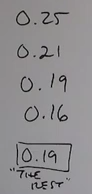 0.25
0.21
0.19
0.16
0.19
"THE
REST"